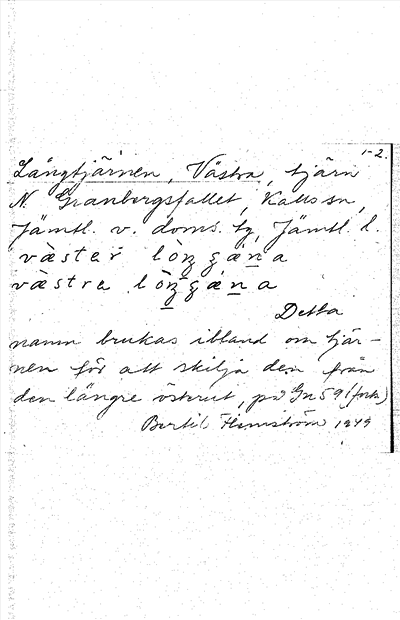 1-2.
Långtjärnen, Västra, tjärn
N. Granbergsfallet, Kalls sn,
Jämtl. v. doms. tg, Jämtl. l.
väster
västra
Detta
namn brukas ibland om tjär-
nen för att skilja den från
den längre österut, på Gn 59 (forts)
Bertil Flemström 1949